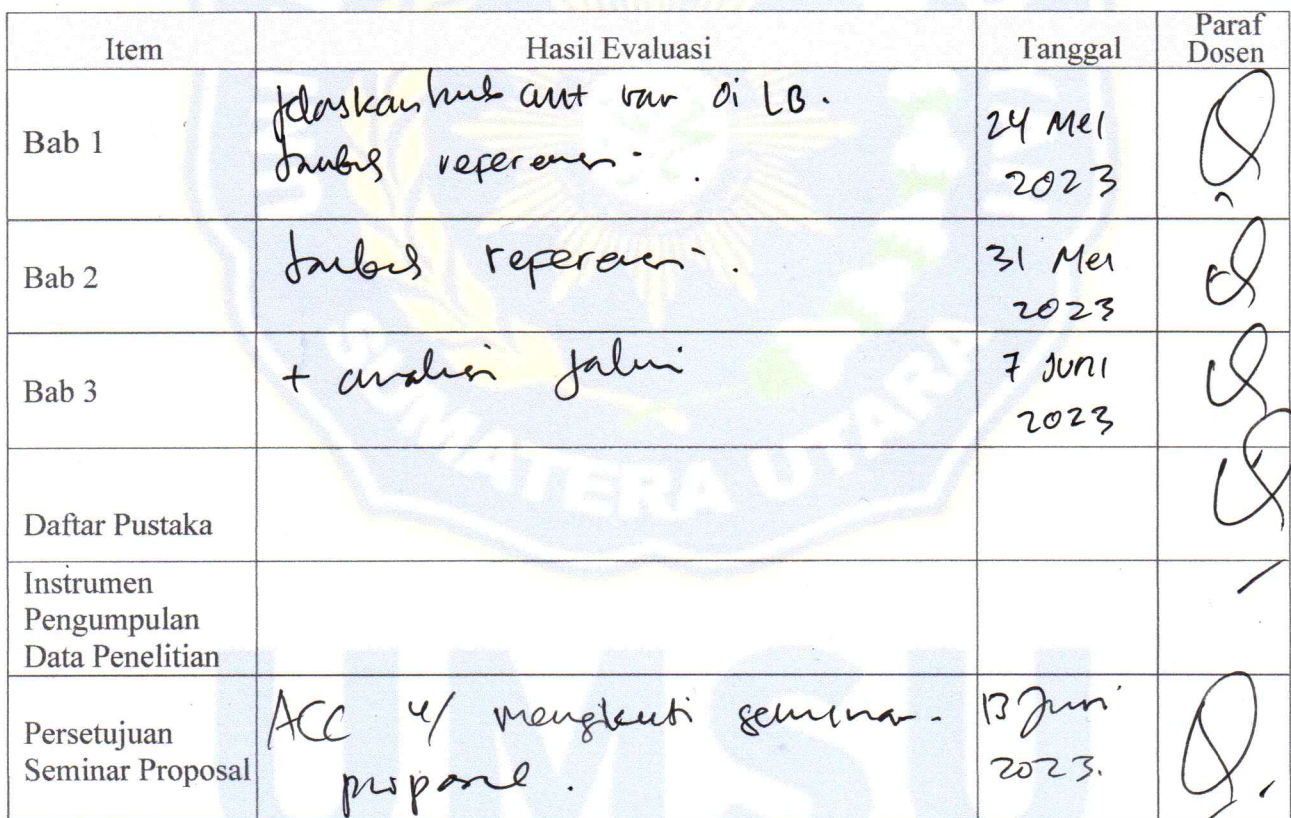 Item Hasil Evaluasi Tanggal Paraf Dosen
Bab 1
Jelaskan hub ant var di LB.
tambah referensi.
24 Mei
2023
Bab 2
tambah referensi.
31 Mei
2023
Bab 3
+ analisis jalur
7 Juni
2023
Daftar Pustaka
Instrumen
Pengumpulan
Data Penelitian
Persetujuan
Seminar Proposal
ACC u/ mengikuti seminar
proposal.
13 Juni
2023.
SUMATERA UTARA
UMSU